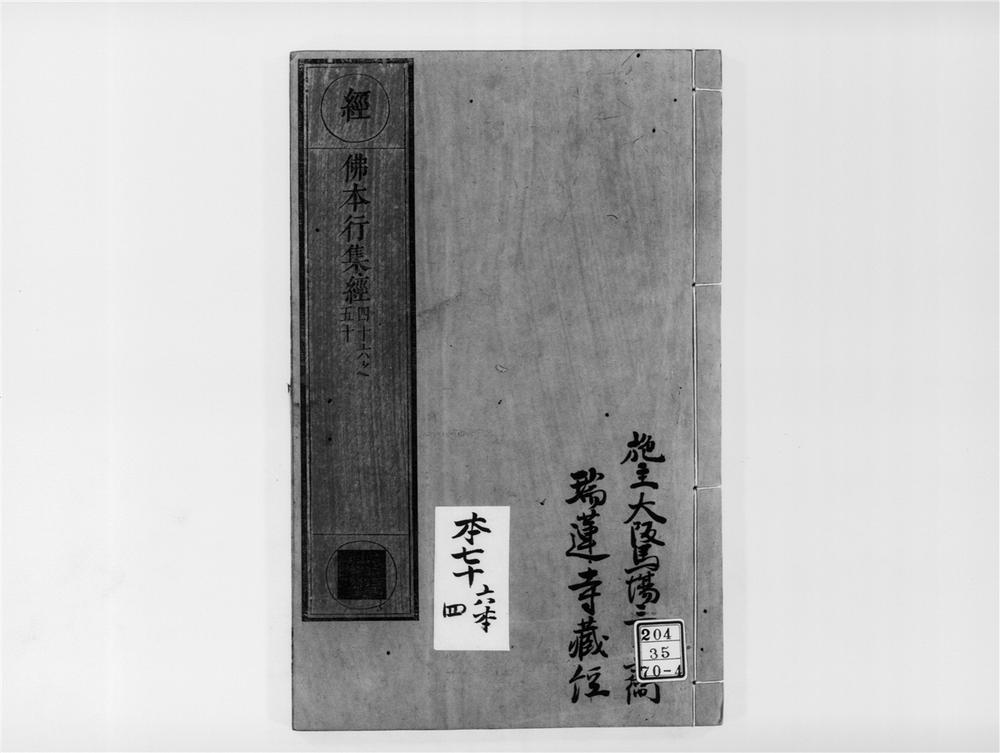 施主大阪馬場三
瑞蓮寺藏經
204
35
70-4
經
佛本行集經
四十六ゟ
五十
本七十
六本
四